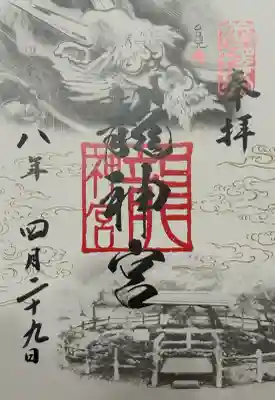 奉拝
龍神宮
龍神宮
八年
四月二十九日